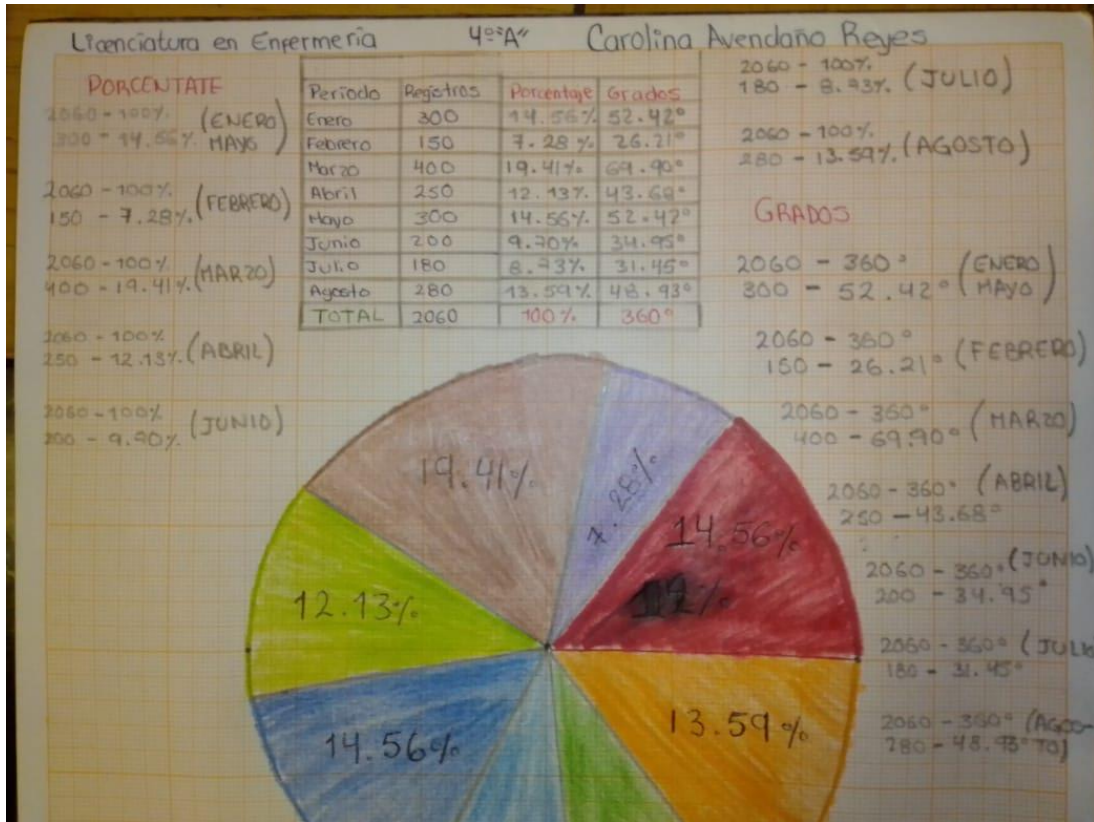 Licenciatura en Enfermería 4º"A" Carolina Avendaño Reyes
PORCENTATE
2060 - 100%
300 - 14.56% (ENERO MAYO)
2060 - 100%
150 - 7.28% (FEBRERO)
2060 - 100%
400 - 19.41% (MARZO)
2060 - 100%
250 - 12.13% (ABRIL)
2060 - 100%
200 - 9.90% (JUNIO)
Periodo Registros Porcentaje Grados
Enero 300 14.56% 52.42°
Febrero 150 7.28% 26.21°
Marzo 400 19.41% 69.90°
Abril 250 12.13% 43.68°
Mayo 300 14.56% 52.42°
Junio 200 9.70% 34.95°
Julio 180 8.73% 31.45°
Agosto 280 13.59% 48.93°
TOTAL 2060 100% 360°
2060 - 100%
180 - 8.73% (JULIO)
2060 - 100%
280 - 13.59% (AGOSTO)
GRADOS
2060 - 360°
300 - 52.42° (ENERO MAYO)
2060 - 360°
150 - 26.21° (FEBRERO)
2060 - 360°
400 - 69.90° (MARZO)
2060 - 360° (ABRIL)
250 - 43.68°
2060 - 360° (JUNIO)
200 - 34.95°
2060 - 360° (JULIO
180 - 31.45°
2060 - 360° (AGOS-
280 - 48.93° TO)
19.41%
7.28%
14.56%
12.13%
13.59%
14.56%